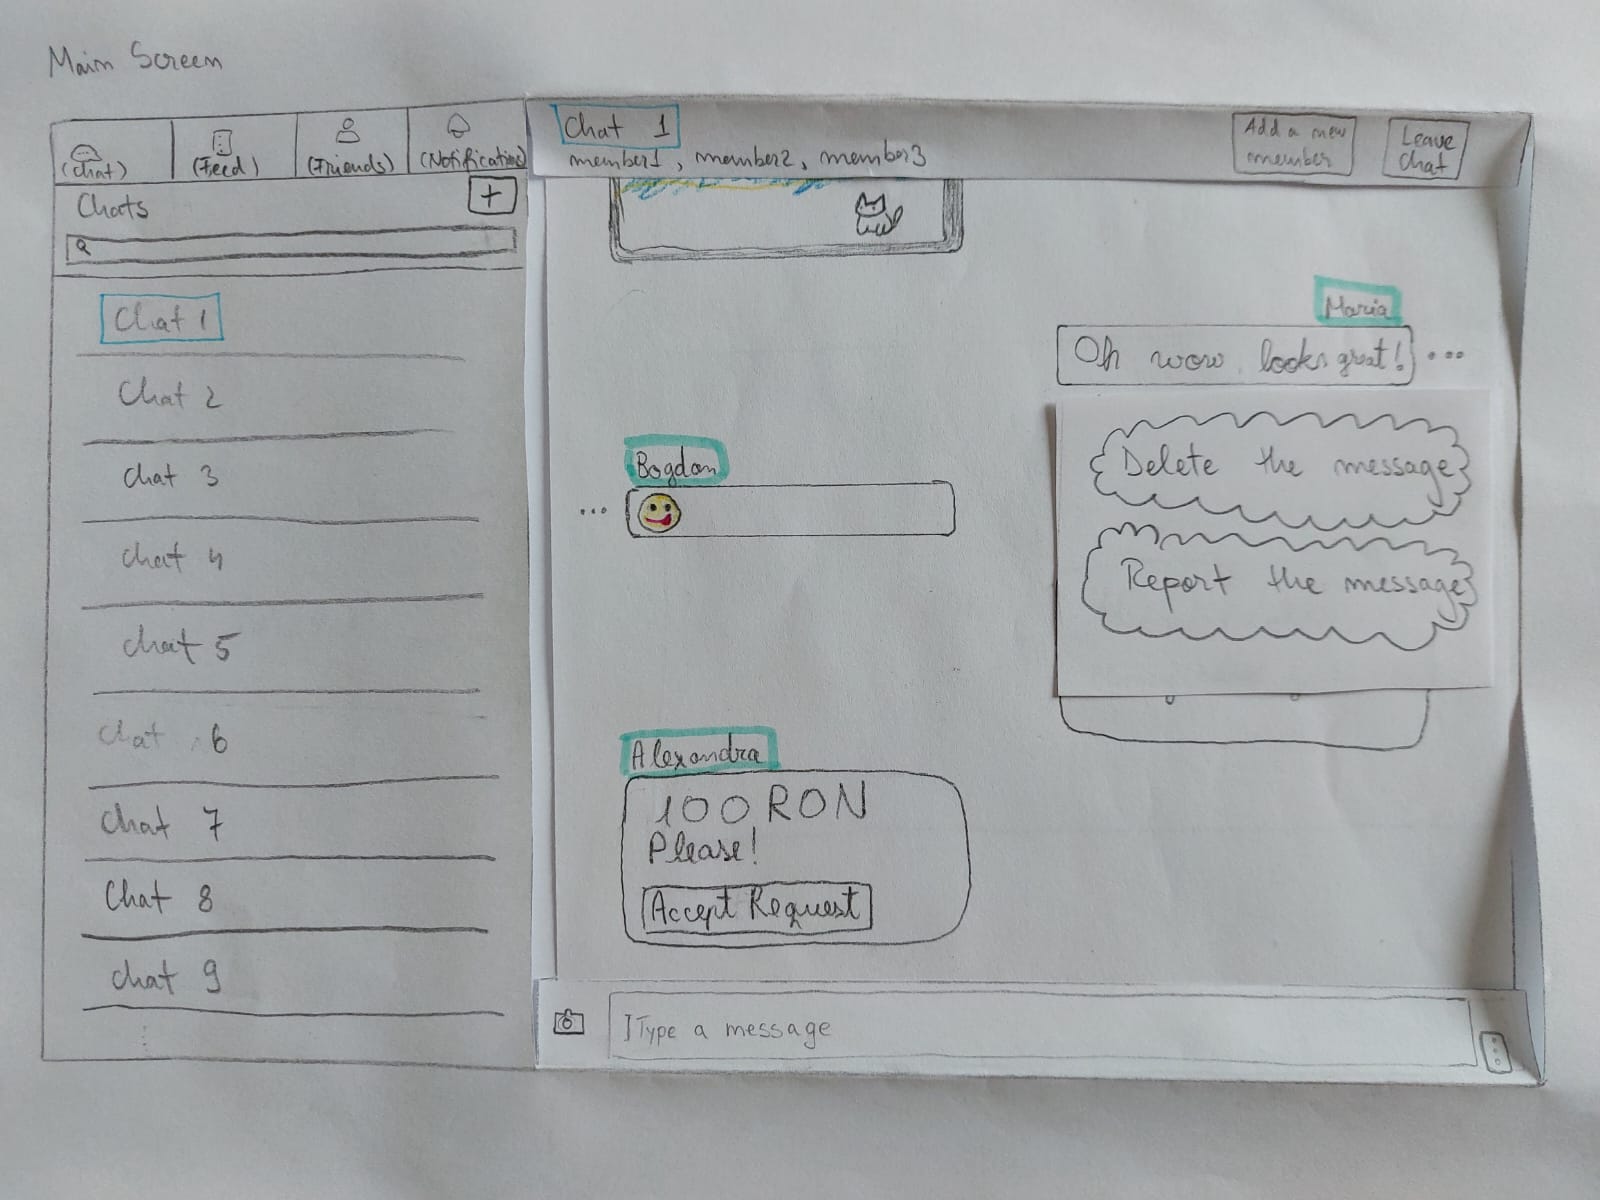 Main Screen
(Chat) (Feed) (Friends) (Notification)
Chats +
Chat 1
Chat 2
Chat 3
Chat 4
Chat 5
Chat 6
Chat 7
Chat 8
Chat 9
Chat 1
member1, member2, member3
Add a new
member
Leave
Chat
Maria
Oh wow, looks great! ...
Delete the message
Report the message
Bogdan
...
Alexandra
100 RON
Please!
Accept Request
Type a message